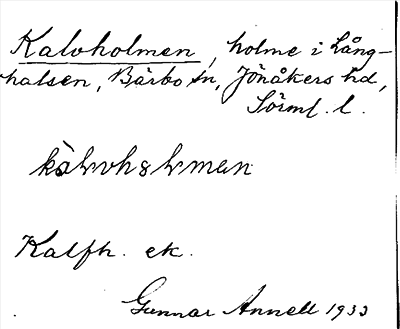 Kalvholmen, holme i Lång-
halsen, Bärbo sn, Jönåkers hd,
Sörml. l.
Kalfh. ek.
Gunnar Annell 1933